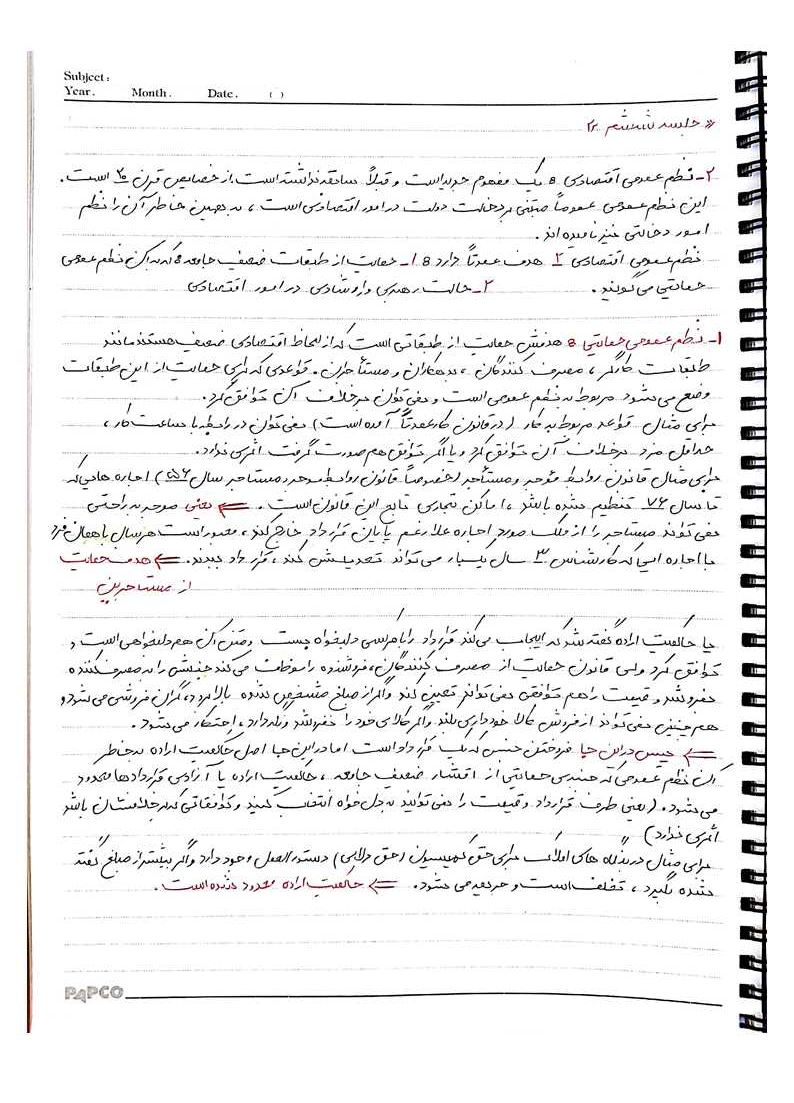 Subject:
Year. Month. Date. ( )
* جلسه ششم ۲۲
۲- نظم عمومی اقتصادی: یک مفهوم جدید است و قبلاً سابقه نداشته است. از خصایص قرن ۲۰ است.
این نظم عمومی عموماً مبتنی بر دخالت دولت در امور اقتصادی است، به همین خاطر آن را نظم
امور دخالتی نیز نامیده اند.
نظم عمومی اقتصادی ۲ هدف عمدتاً دارد: ۱- حمایت از طبقات ضعیف جامعه که به آن نظم عمومی
حمایتی می گویند. ۲- حالت رهبری و ارشادی در امور اقتصادی
۱- نظم عمومی حمایتی: هدفش حمایت از طبقاتی است که از لحاظ اقتصادی ضعیف هستند مانند
طبقات کارگر، مصرف کنندگان، بدهکاران و مستأجران. قواعدی که برای حمایت از این طبقات
وضع می شود مربوط به نظم عمومی است و نمی توان برخلاف آن توافق کرد.
برای مثال قواعد مربوط به کار (در قانون کار عمدتاً آمده است) نمی توان در رابطه با ساعت کار،
حداقل مزد برخلاف آن توافق کرد و یا اگر توافق هم صورت گرفت اثری ندارد.
برای مثال قانون روابط موجر و مستأجر (خصوصاً قانون روابط موجر و مستاجر سال ۵۶) اجاره هایی که
تا سال ۷۶ تنظیم شده باشد، اماکن تجاری تابع این قانون است. ⇐ یعنی موجر به راحتی
نمی تواند مستاجر را از ملک مورد اجاره علارغم پایان قرارداد خارج کند، مجبور است هر سال با همان فرد
با اجاره ایی که کارشناس ۳ سال یکبار می تواند تعدیلش کند، قرارداد ببندد. ⇐ هدف حمایت
از مستاجرین
یا حاکمیت اراده گفته شد که ایجاب می کند قرارداد را با هرکسی دلبخواه چیست و متن آن هم دلبخواهی است و
توافق کرد ولی قانون حمایت از مصرف کنندگان، فروشنده را موظف می کند جنسش را به مصرف کننده
بفروشد و قیمت را هم توافقی نمی تواند تعیین کند و اگر از مبلغ مشخص شده بالا برد، گران فروشی می شود و
هم چنین نمی تواند از فروش کالا خودداری بکند و اگر کالای خود را نفروشد و نگه دارد، احتکار می شود.
⇐ پس در این جا فروختن جنس که یک قرارداد است اما در این جا اصل حاکمیت اراده به خاطر
آن نظم عمومی که جنبه ی حمایتی از اقشار ضعیف جامعه، حاکمیت اراده یا آزادی قراردادها محدود
می شود. (یعنی طرف قرارداد و قیمت را نمی توانید به دل خواه انتخاب کنید و توافقاتی که برخلافشان باشد
اثری ندارد)
برای مثال در بنگاه های املاک برای حق کمیسیون (حق دلالی) دستورالعمل وجود دارد و اگر بیشتر از مبلغ گفته
شده بگیرد، تخلف است و جریمه می شود. ⇐ حاکمیت اراده محدود شده است.
PAPCO